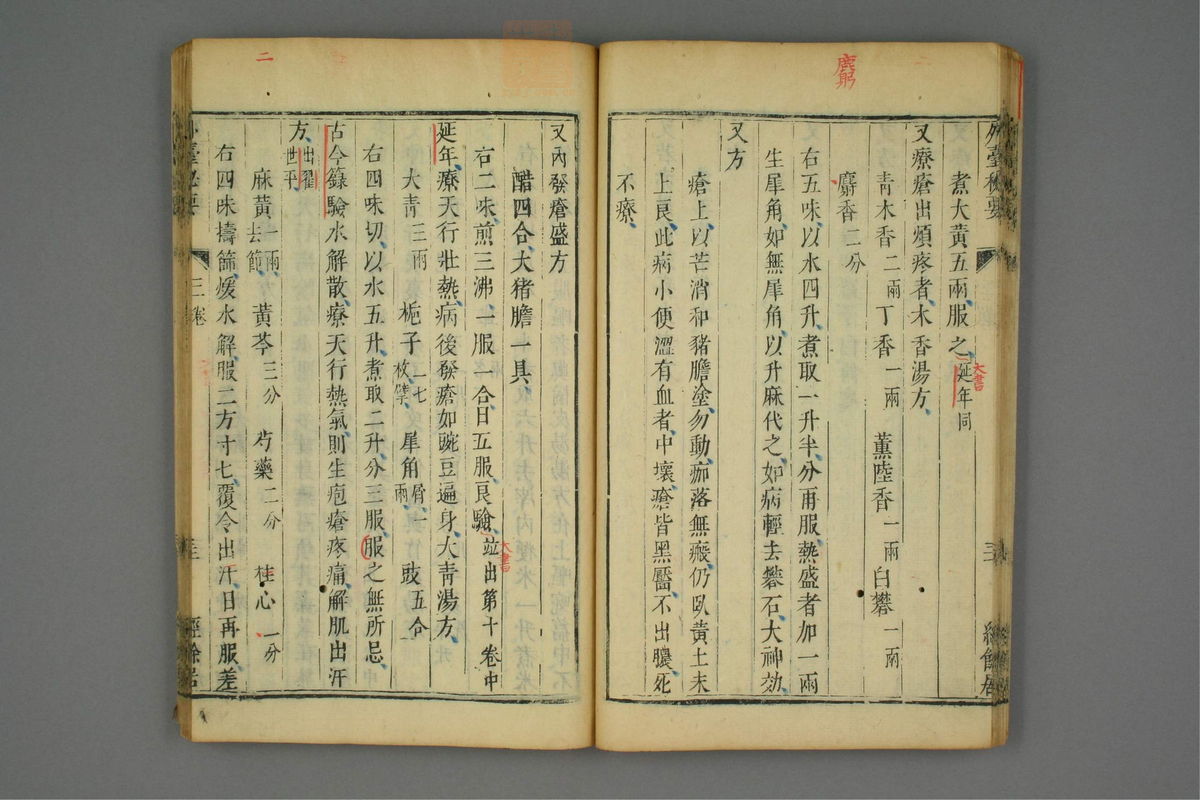 外臺秘要
煮大黃五兩服之延年同
大書
又療瘡出煩疼者木香湯方
青木香二兩 丁香一兩 薰陸香一兩 白礬一兩
麝香二分
右五味以水四升煮取一升半分再服熱盛者加一兩
生犀角如無犀角以升麻代之如病輕去礬石大神効
又方
瘡上以芒消和豬膽塗勿動痂落無瘢仍臥黃土末
上良此病小便澀有血者中壞瘡皆黑靨不出膿死
不療
又內發瘡盛方
醋四合大豬膽一具
右二味煎三沸一服一合日五服良驗並出第十卷中
大書
延年療天行壯熱病後發瘡如豌豆遍身大青湯方
大青三兩 梔子一七枚擘 犀角屑一兩 豉五合
右四味切以水五升煮取二升分三服服之無所忌
古今錄驗水解散療天行熱氣則生疱瘡疼痛解肌出汗
方出翟世平
麻黃一兩去節 黃芩三分 芍藥二分 桂心一分
右四味擣篩煖水解服二方寸七覆令出汗日再服差
三卷
二